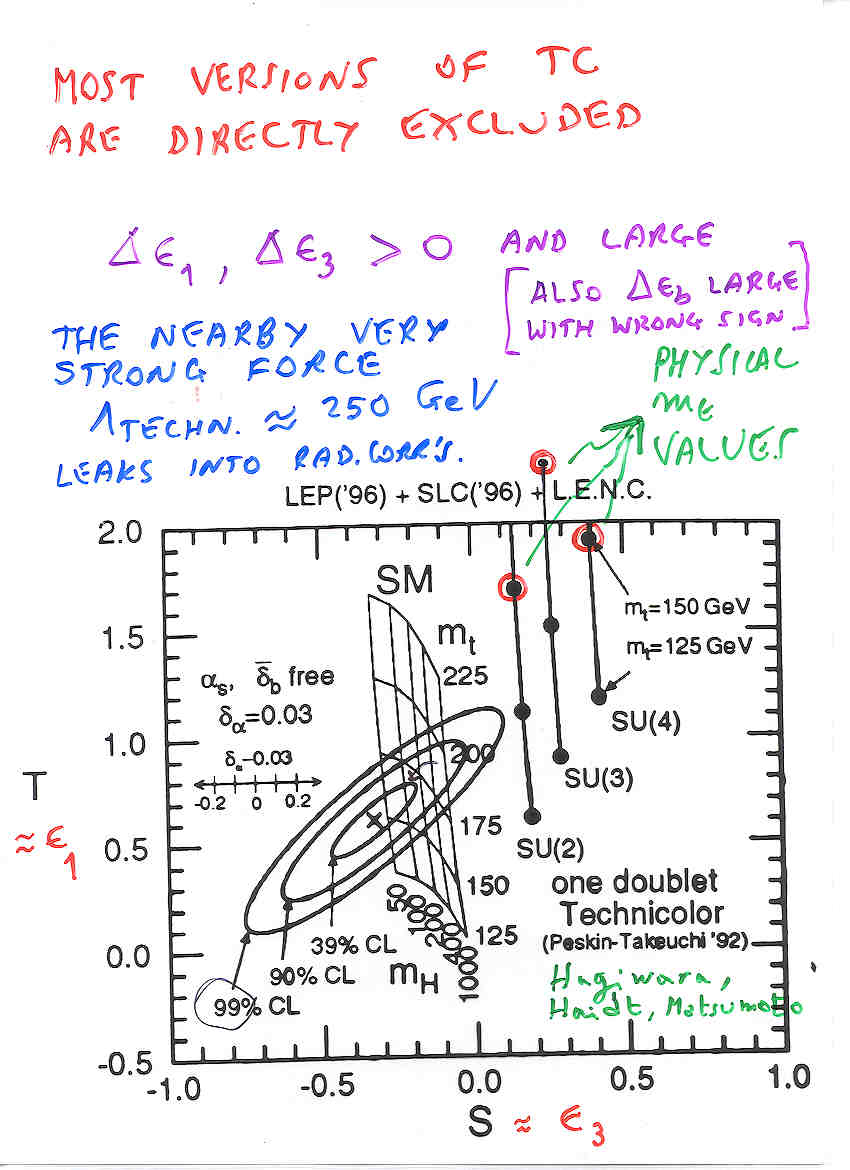 MOST VERSIONS OF TC
ARE DIRECTLY EXCLUDED
Δϵ₁, Δϵ₃ > 0 AND LARGE
[ALSO Δϵb LARGE
WITH WRONG SIGN]
THE NEARBY VERY
STRONG FORCE
ΛTECHN. ≈ 250 GeV
LEAKS INTO RAD. CORR'S.
PHYSICAL
mt
VALUES
LEP('96) + SLC('96) + L.E.N.C.
2.0
1.5
1.0
0.5
0.0
-0.5
T
≈ ϵ₁
SM
mt
225
200
175
150
125
αs, δ̄b free
δα=0.03
δα-0.03
-0.2 0 0.2
mt=150 GeV
mt=125 GeV
SU(4)
SU(3)
SU(2)
one doublet
Technicolor
(Peskin-Takeuchi '92)
Hagiwara,
Haidt, Matsumoto
50
100
200
400
1000
mH
39% CL
90% CL
99% CL
-1.0 -0.5 0.0 0.5 1.0
S ≈ ϵ₃